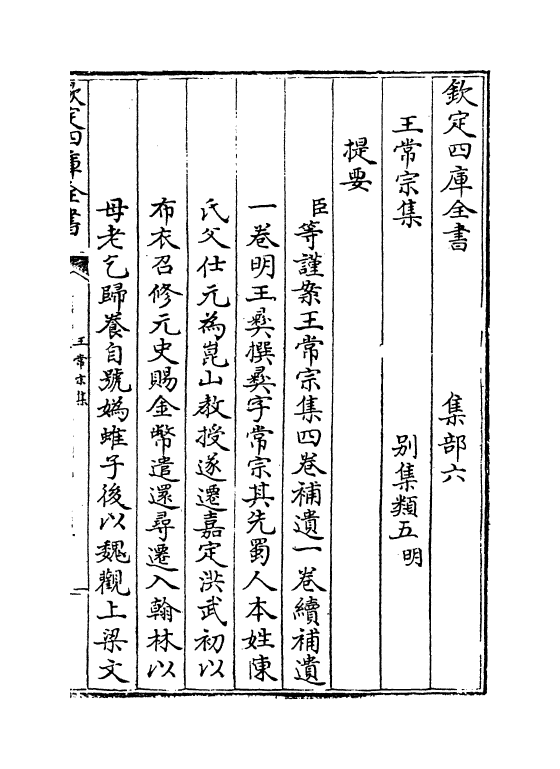 欽定四庫全書　集部六
王常宗集　別集類五明
提要
臣等謹案王常宗集四卷補遺一卷續補遺
一卷明王彞撰彞字常宗其先蜀人本姓陳
氏父仕元為崑山教授遂遷嘉定洪武初以
布衣召修元史賜金幣遣還尋遷入翰林以
母老乞歸養自號媯蜼子後以魏觀上梁文
欽定四庫全書
王常宗集